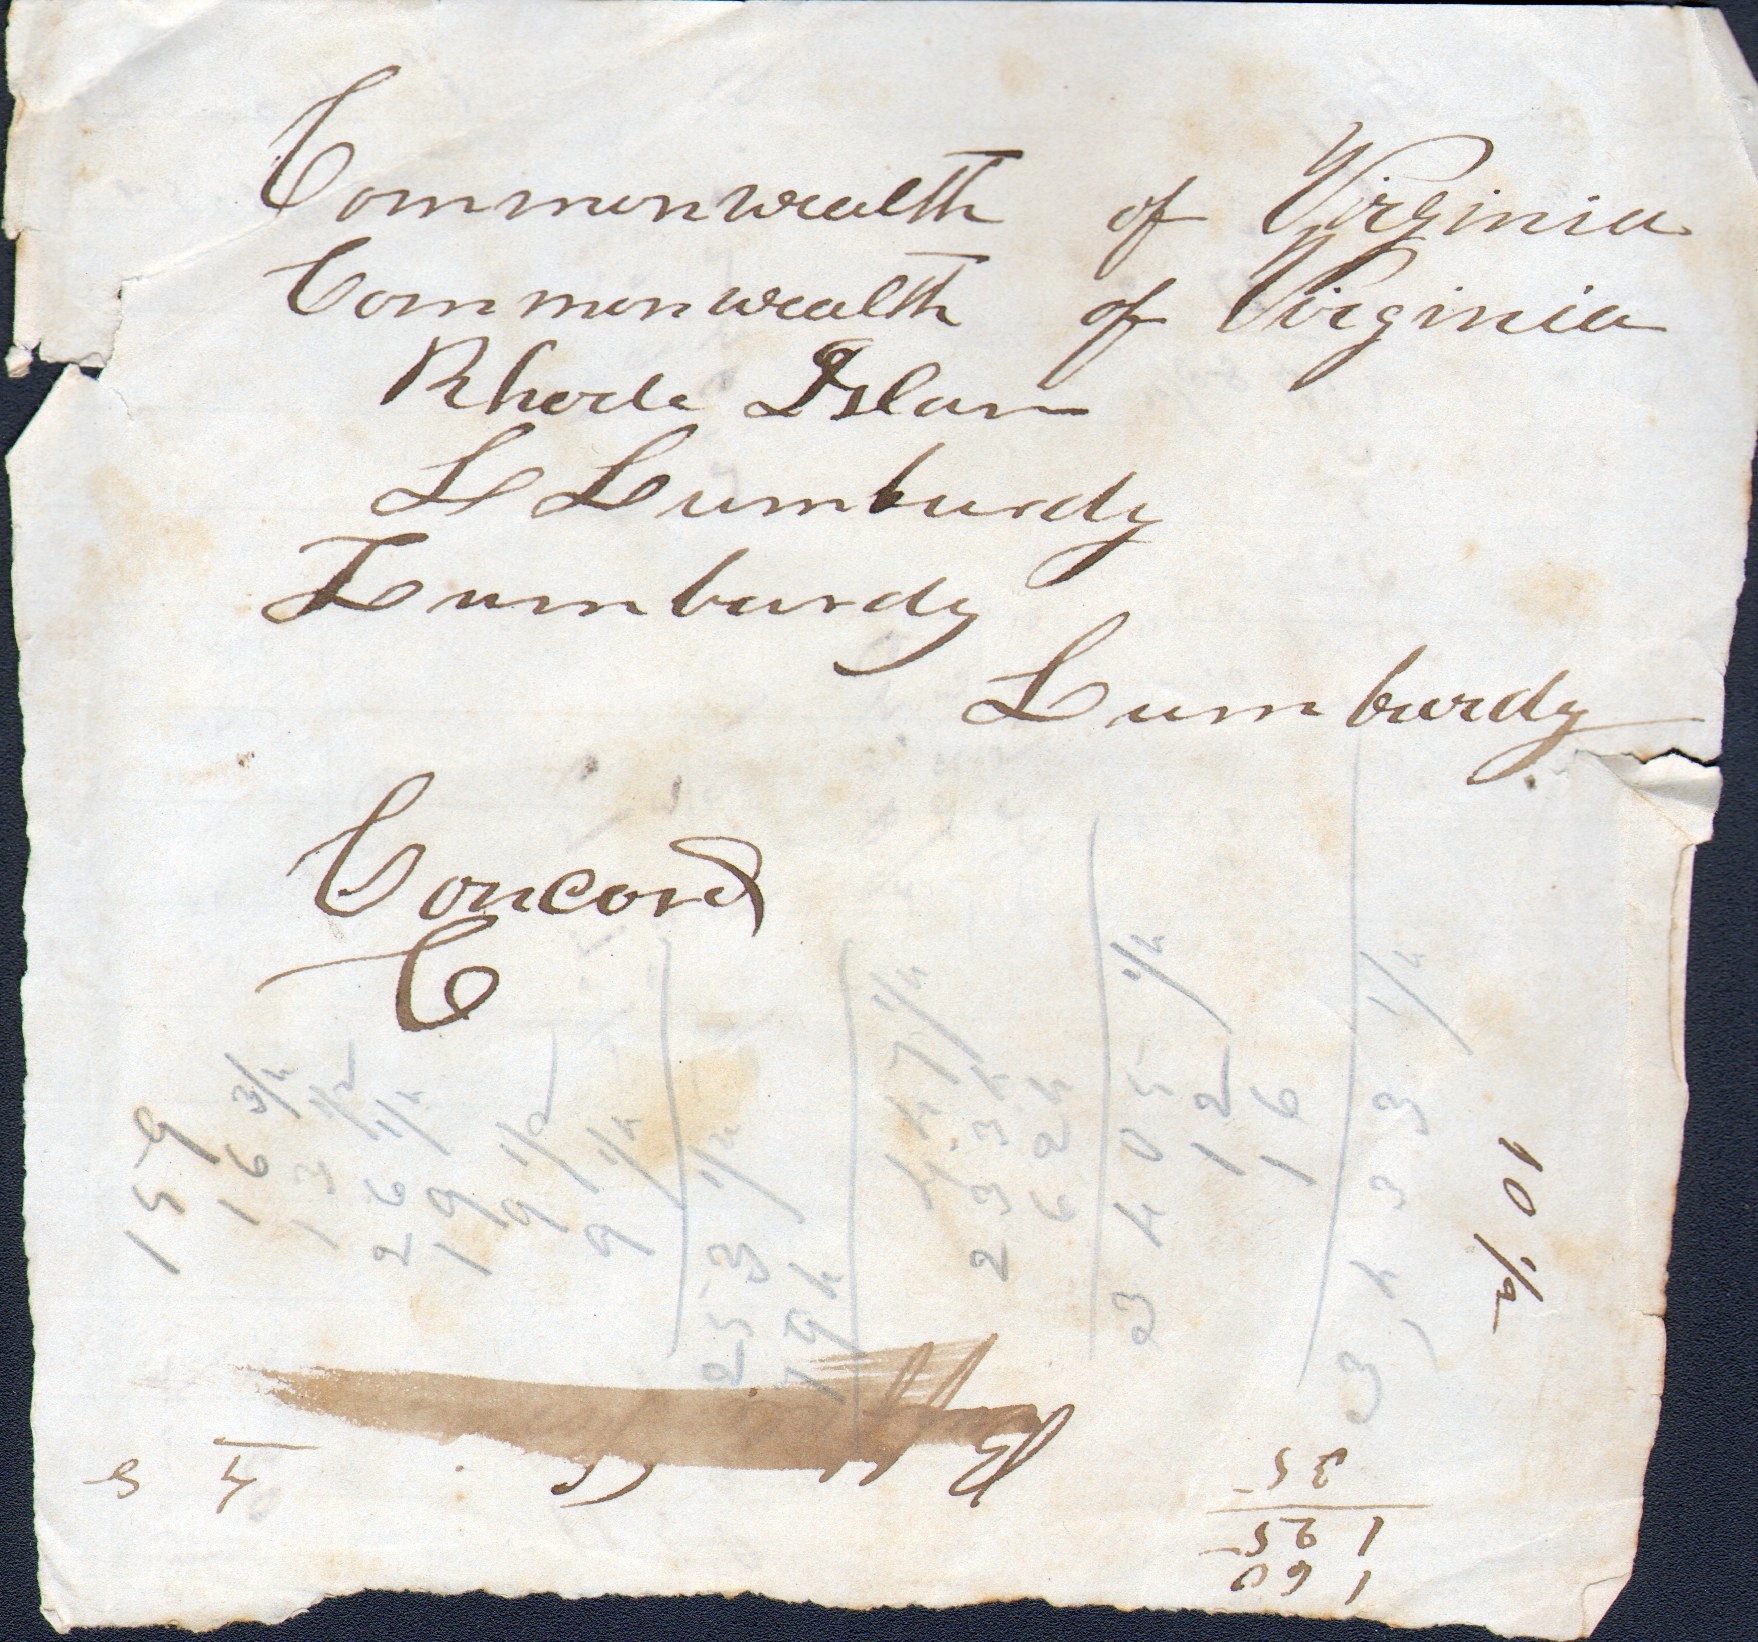 Commonwealth of Virginia
Commonwealth of Virginia
Rhode Islan
L Lumburdy
Lumburdy
Lumburdy
Concord
C
159
16 3/4
13 1/2
26 1/4
19 1/2
9 1/2
9 1/4
253 1/4
794
447 1/4
2334
624
3405 1/4
12
16
3433 1/4
10 1/2
1 60
1 25
35